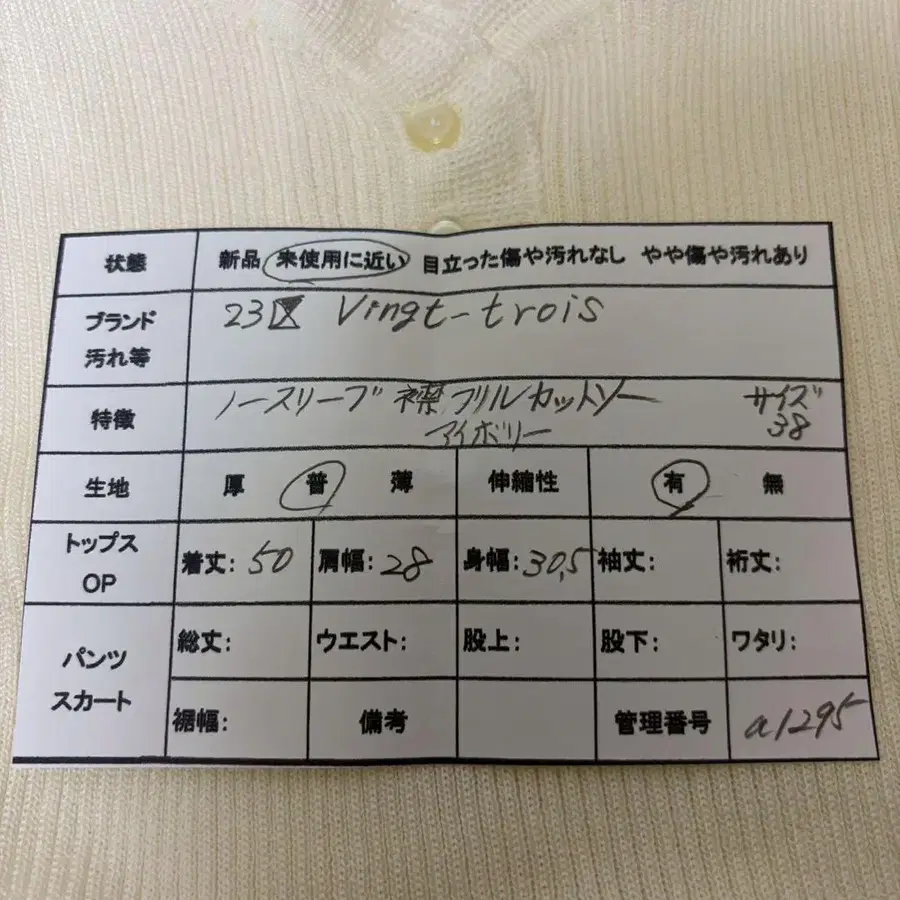 状態 新品 未使用に近い 目立った傷や汚れなし やや傷や汚れあり
ブランド 汚れ等 23区 Vingt-trois
特徴 ノースリーブ 襟フリルカットソー サイズ 38
アイボリー
生地 厚 普 薄 伸縮性 有 無
トップス OP 着丈: 50 肩幅: 28 身幅: 30,5 袖丈: 裄丈:
パンツ スカート 総丈: ウエスト: 股上: 股下: ワタリ:
裾幅: 備考 管理番号 a1295